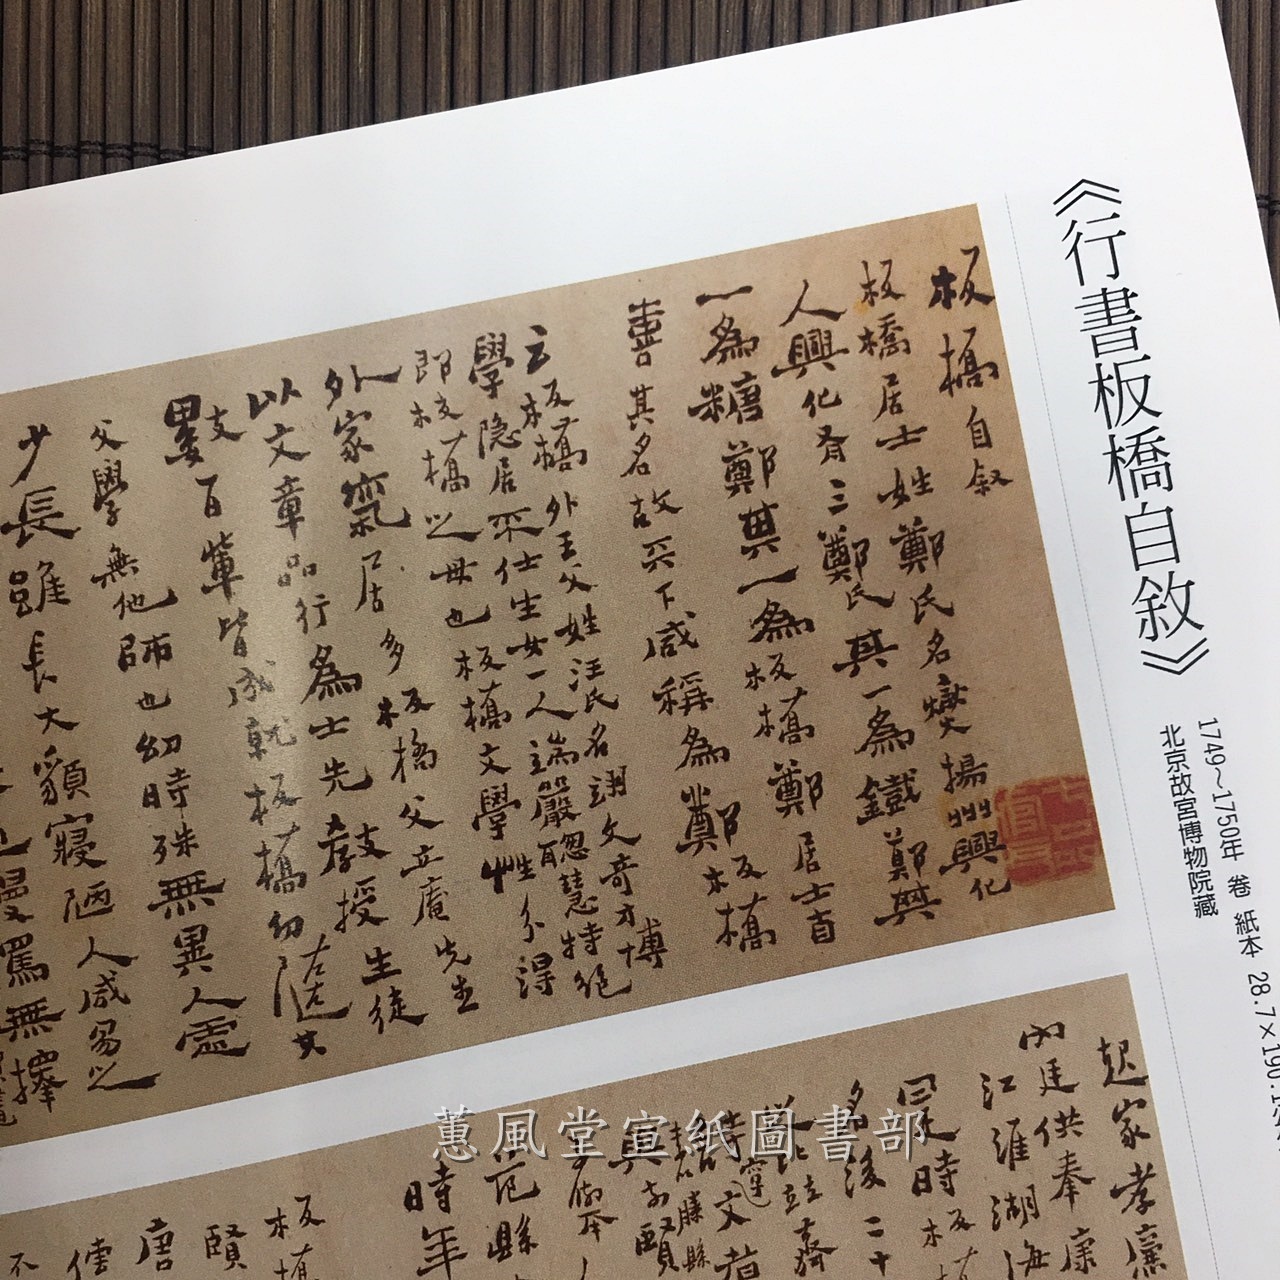 《行書板橋自敘》
1749～1750年 卷 紙本 28.7×190.
北京故宮博物院藏
板橋自叙
板橋居士姓鄭氏名燮揚州興化
人興化有三鄭氏其一為鐵鄭其
一為糖鄭其一為板橋鄭居士自
喜其名故天下咸稱為鄭板橋
云板橋外王父姓汪氏名翊文奇才博
學隐居不仕生女一人端嚴聰慧特绝
即板橋之母也板橋文學性分得
外家氣居多板橋父立庵先生
以文章品行為士先教授生徒
數百輩皆成就板橋幼隨其
父學無他師也幼時殊無異人處
少長雖長大貌寢陋人咸易之
罵無擇
起家孝廉
內廷供奉康
江淮湖海
是時板橋
名後二十
時文者
范縣
時年
板橋
賢
唐
不
蕙風堂宣紙圖書部